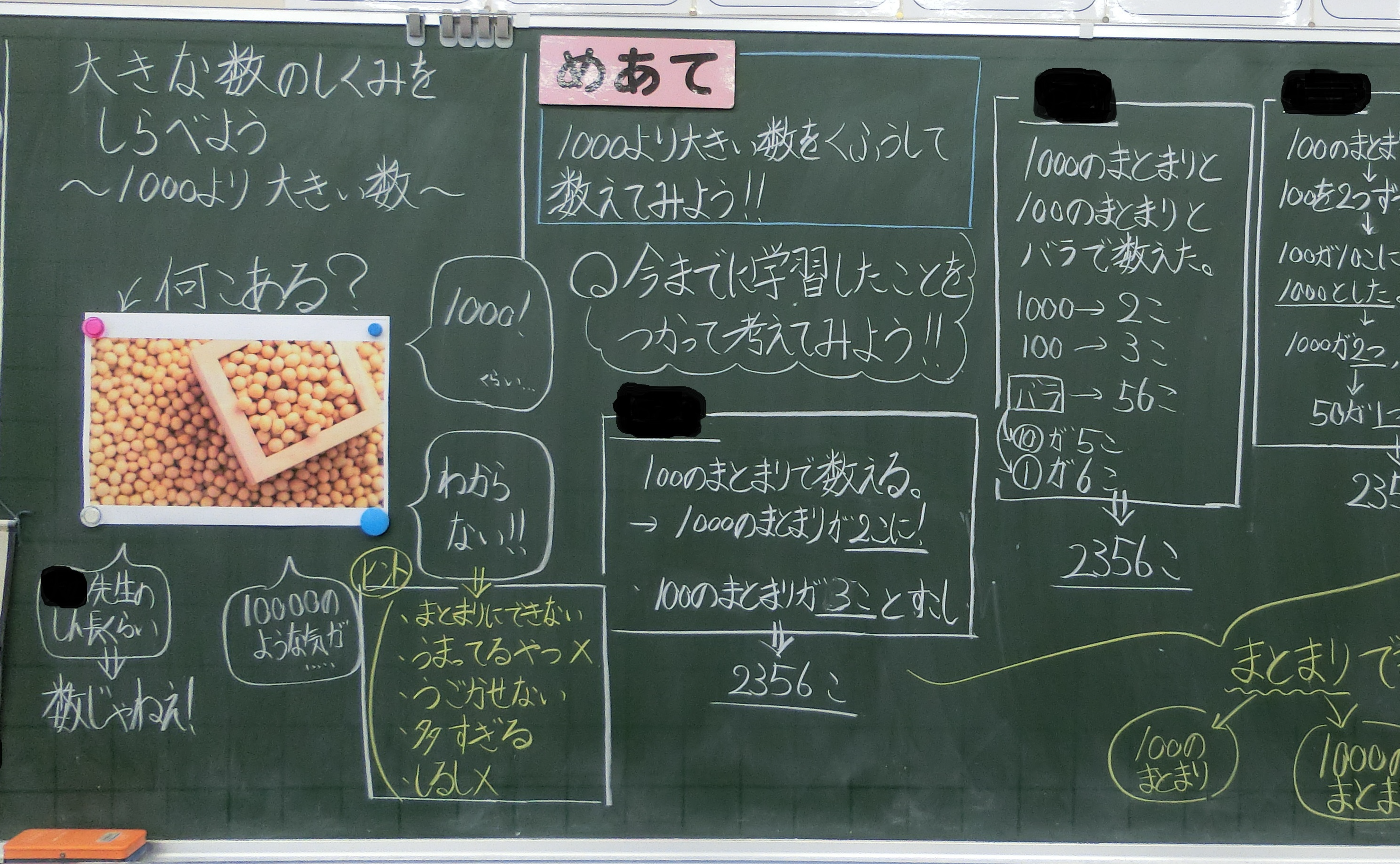 大きな数のしくみを
しらべよう
～1000より大きい数～
何こある?
1000!
くらい…
わから
ない!!
先生の
しん長くらい
数じゃねえ!
10000の
ような気が
.....
ヒント
・まとまりにできない
・うまってるやつ×
・うごかせない
・多すぎる
・しるし×
めあて
1000より大きい数をくふうして
数えてみよう!!
今までに学習したことを
つかって考えてみよう!!
100のまとまりで数える。
→ 1000のまとまりが2こに!
100のまとまりが3ことすこし
2356こ
1000のまとまりと
100のまとまりと
バラで数えた。
1000→2こ
100→3こ
バラ→56こ
⑩が5こ
①が6こ
2356こ
100のまとま
100を2つずつ
100が10こに
1000とした
1000が2つ
50が1
235
まとまりで
100の
まとまり
1000の
まとま